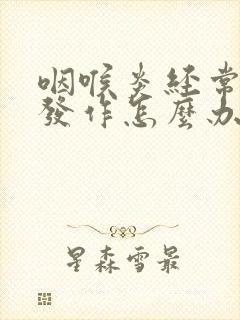 咽喉炎經常
發作怎麼办
星森雪最